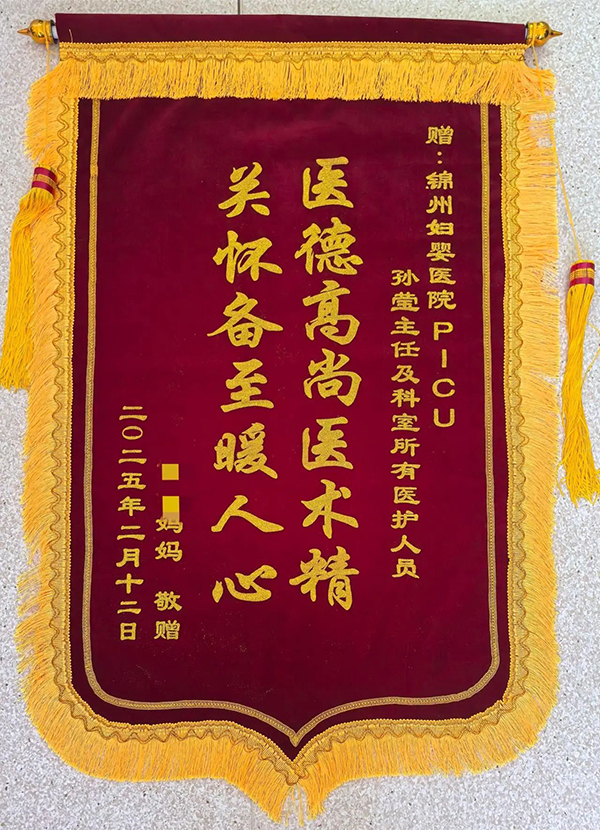 赠：锦州妇婴医院PICU
孙莹主任及科室所有医护人员
医德高尚医术精
关怀备至暖人心
妈妈 敬赠
二〇二五年二月十二日